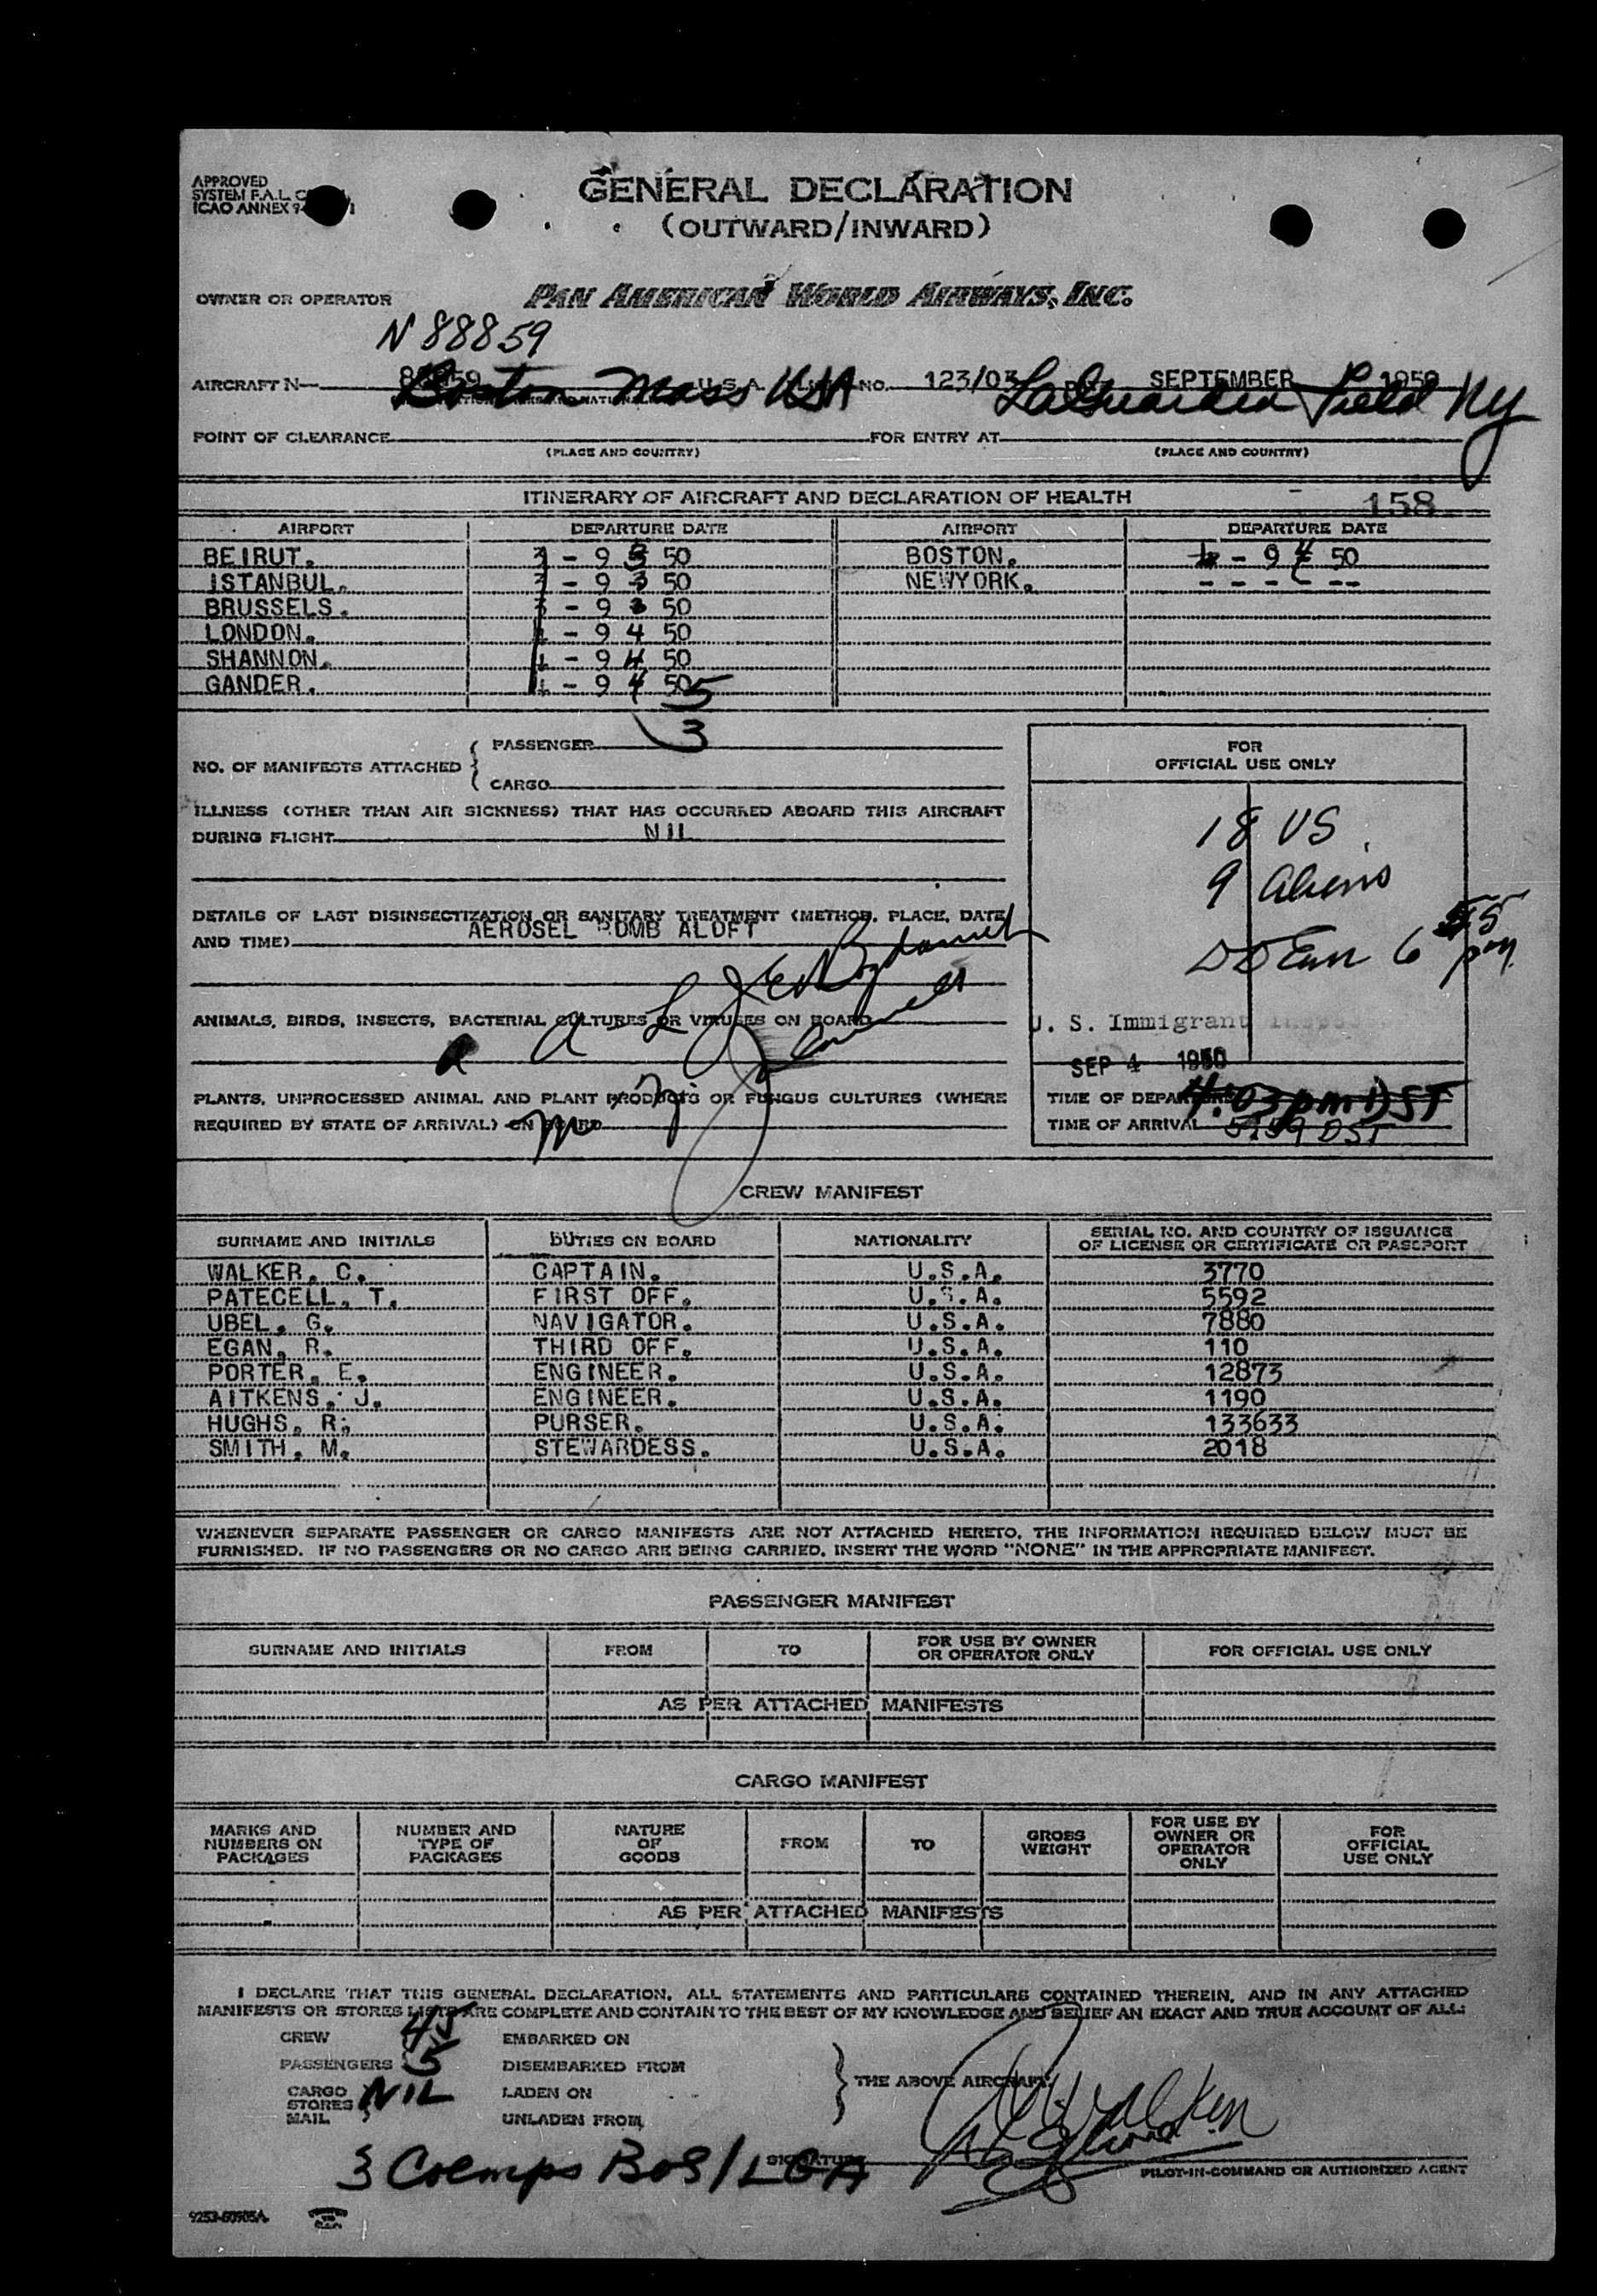 APPROVED
SYSTEM F.A.L.
ICAO ANNEX 9-
GENERAL DECLARATION
(OUTWARD/INWARD)
OWNER OR OPERATOR
PAN AMERICAN WORLD AIRWAYS, INC.
N 88859
AIRCRAFT N— U.S.A. NO. 123/03 SEPTEMBER 1950
Boston Mass USA LaGuardia Field NY
POINT OF CLEARANCE FOR ENTRY AT
(PLACE AND COUNTRY) (PLACE AND COUNTRY)
ITINERARY OF AIRCRAFT AND DECLARATION OF HEALTH 158
AIRPORT DEPARTURE DATE AIRPORT DEPARTURE DATE
BEIRUT. - 9 3 50 BOSTON. - 9 4 50
ISTANBUL. - 9 3 50 NEWYORK. - - - - - -
BRUSSELS. - 9 3 50
LONDON. - 9 4 50
SHANNON. - 9 4 50
GANDER. - 9 4 50
5
3
PASSENGER
NO. OF MANIFESTS ATTACHED
CARGO
FOR
OFFICIAL USE ONLY
ILLNESS (OTHER THAN AIR SICKNESS) THAT HAS OCCURRED ABOARD THIS AIRCRAFT
DURING FLIGHT NIL
18 US
9 aliens
DETAILS OF LAST DISINSECTIZATION OR SANITARY TREATMENT (METHOD, PLACE, DATE
AND TIME) AEROSEL BOMB ALOFT
6 55 pm
ANIMALS, BIRDS, INSECTS, BACTERIAL CULTURES OR VIRUSES ON BOARD
U. S. Immigrant
SEP 4 1950
PLANTS, UNPROCESSED ANIMAL AND PLANT PRODUCTS OR FUNGUS CULTURES (WHERE
REQUIRED BY STATE OF ARRIVAL) ON BOARD
TIME OF DEPARTURE 4:03 pm DST
TIME OF ARRIVAL 5:59 DST
CREW MANIFEST
SURNAME AND INITIALS DUTIES ON BOARD NATIONALITY SERIAL NO. AND COUNTRY OF ISSUANCE
OF LICENSE OR CERTIFICATE OR PASSPORT
WALKER, C. CAPTAIN. U.S.A. 3770
PATECELL, T. FIRST OFF. U.S.A. 5592
UBEL, G. NAVIGATOR. U.S.A. 7880
EGAN, R. THIRD OFF. U.S.A. 110
PORTER, E. ENGINEER. U.S.A. 12873
AITKENS, J. ENGINEER. U.S.A. 1190
HUGHS, R. PURSER. U.S.A. 133633
SMITH, M. STEWARDESS. U.S.A. 2018
WHENEVER SEPARATE PASSENGER OR CARGO MANIFESTS ARE NOT ATTACHED HERETO, THE INFORMATION REQUIRED BELOW MUST BE
FURNISHED. IF NO PASSENGERS OR NO CARGO ARE BEING CARRIED, INSERT THE WORD "NONE" IN THE APPROPRIATE MANIFEST.
PASSENGER MANIFEST
SURNAME AND INITIALS FROM TO FOR USE BY OWNER
OR OPERATOR ONLY FOR OFFICIAL USE ONLY
AS PER ATTACHED MANIFESTS
CARGO MANIFEST
MARKS AND
NUMBERS ON
PACKAGES
NUMBER AND
TYPE OF
PACKAGES
NATURE
OF
GOODS
FROM
TO
GROSS
WEIGHT
FOR USE BY
OWNER OR
OPERATOR
ONLY
FOR
OFFICIAL
USE ONLY
AS PER ATTACHED MANIFESTS
I DECLARE THAT THIS GENERAL DECLARATION, ALL STATEMENTS AND PARTICULARS CONTAINED THEREIN, AND IN ANY ATTACHED
MANIFESTS OR STORES LISTS ARE COMPLETE AND CONTAIN TO THE BEST OF MY KNOWLEDGE AND BELIEF AN EXACT AND TRUE ACCOUNT OF ALL:
CREW EMBARKED ON
PASSENGERS 5 DISEMBARKED FROM
THE ABOVE AIRCRAFT
CARGO LADEN ON
STORES NIL
MAIL UNLADEN FROM
SIGNATURE
3 Coemps BOS/LGA
PILOT-IN-COMMAND OR AUTHORIZED AGENT
9253-60905A